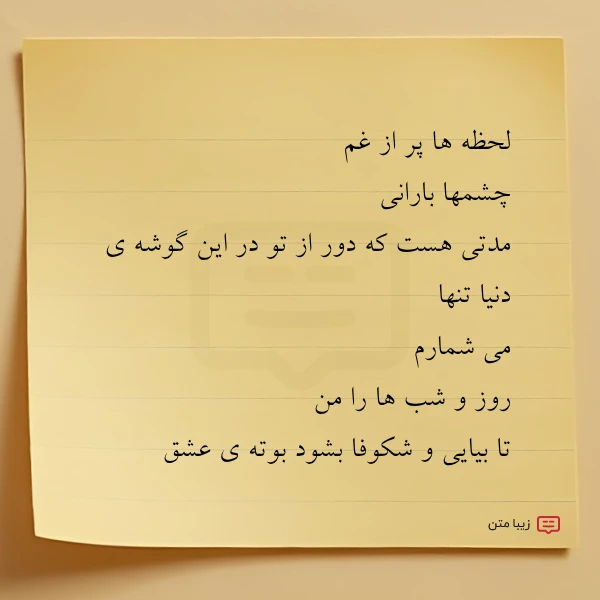 لحظه ها پر از غم
چشمها بارانی
مدتی هست که دور از تو در این گوشه ی
دنیا تنها
می شمارم
روز و شب ها را من
تا بیایی و شکوفا بشود بوته ی عشق
زیبا متن